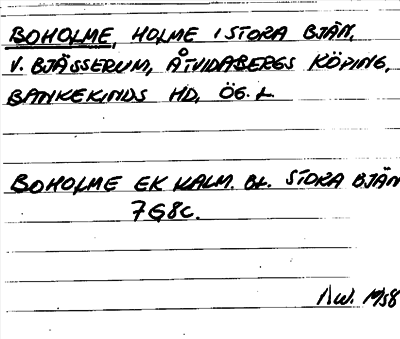 BOHOLME, HOLME I STORA BJÄN,
V. BJÄSSERUM, ÅTVIDABERGS KÖPING,
BANKEKINDS HD, ÖG. L.
BOHOLME EK KALM. BL. STORA BJÄN
7G8c.